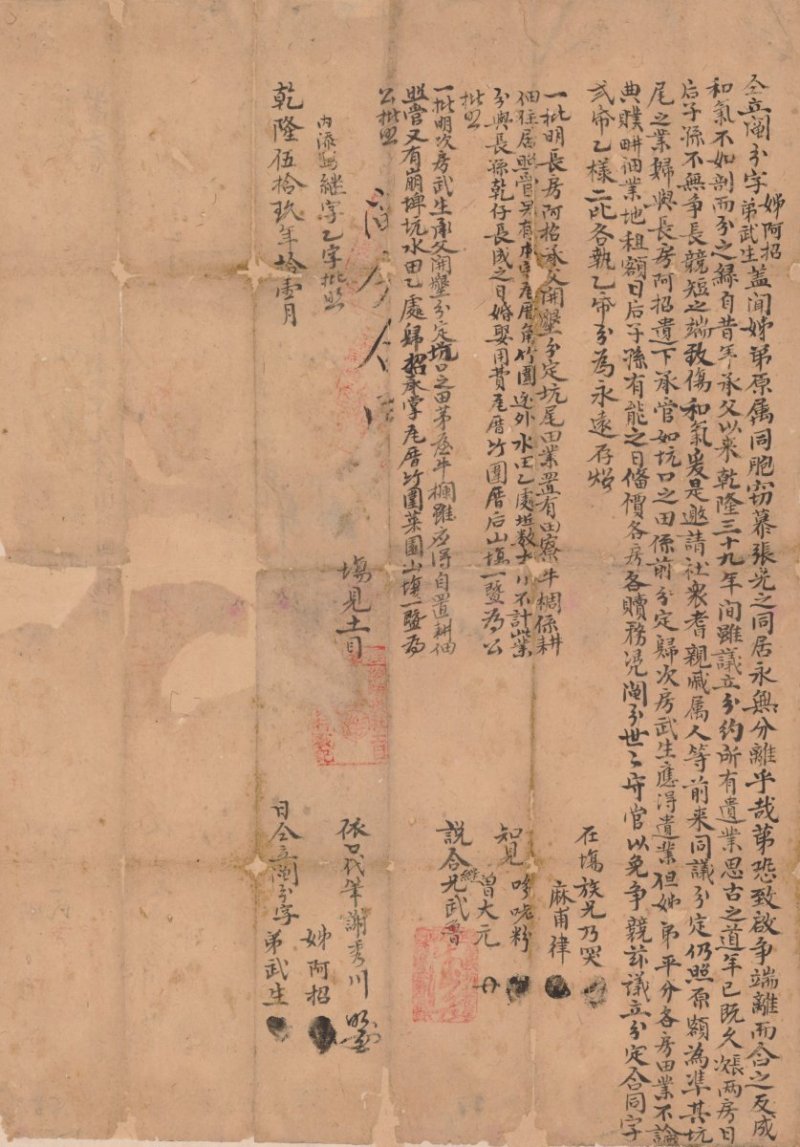 仝立鬮分字姊阿招弟武生蓋聞姊弟原屬同胞窃慕張光之同居永無分離乎哉第恐致啟争端離而合之反成
和氣不如剖而分之緣自昔年承父以來乾隆三十九年间雖議立分約所有遺業思古之道年已既久次張两房日
后子孫不無争長競短之端致傷和氣爰是邀請社衆耆親戚属人等前来同議分定仍照原額為準其坑
尾之業歸與長房阿招遺下承管如坑口之田係前分定歸次房武生應得遺業但姊弟平分各房田業不論
典贌畊佃業地租額日后子孫有能之日備價各房各贖務凴鬮分世々守管以免争競茲議立分定合同字
弍帋乙樣二比各執乙帋分為永遠存炤
一批明長房阿招承父開墾分定坑尾田業置有田寮牛椆係耕
佃往居照管另有本身瓦厝角竹圍迯外水田乙處坵数大小不計此業
分與長孫乾仔長成之日婚娶用費瓦厝竹圍厝后山塲一暨為公
批照
一批明次房武生承父開墾分定坑口之田茅屋牛欄雖應得自置耕佃
照管又有崩埤坑水田乙處歸招承掌瓦厝竹圍菜園山塲一暨為
公批照
内添註継字乙字批照
乾隆伍拾玖年拾壹月
日仝立鬮分字
姊阿招
弟武生
依口代筆謝秀川
塲見土目
説合尤武魯
継
知見
曽大元
哆吣粉
在塲族兄乃哭
麻甫律